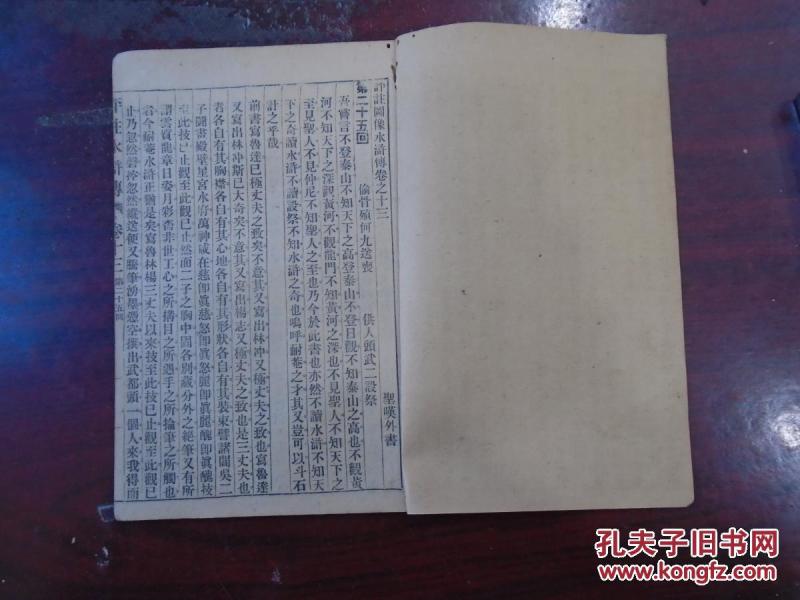 評註圖像水滸傳卷之十三
聖嘆外書
第二十五回
偷骨殖何九送喪
供人頭武二設祭
吾嘗言不登泰山不知天下之高登泰山不登日觀不知泰山之高也不觀黃
河不知天下之深觀黃河不觀龍門不知黃河之深也不見聖人不知天下之
至見聖人不見仲尼不知聖人之至也乃今於此書也亦然不讀水滸不知天
下之奇讀水滸不讀設祭不知水滸之奇也嗚呼耐菴之才其又豈可以斗石
計之乎哉
前書寫魯達已極丈夫之致矣不意其又寫出林冲又極丈夫之致也寫魯達
又寫出林冲斯已大奇矣不意其又寫出楊志又極丈夫之致也是三丈夫也
者各自有其胸襟各自有其心地各自有其形狀各自有其裝束譬諸閻吳二
子鬭畫殿壁星宮水府萬神咸在慈卽眞慈怒卽眞怒麗卽眞麗醜卽眞醜技
至此技已止觀至此觀已止然而二子之胸中固各別藏分外之絕筆又有所
謂雲質龍章日姿月彩杳非世工心之所搆目之所遇手之所掄筆之所觸也
者今耐菴水滸正猶是矣寫魯林楊三丈夫以來技至此技已止觀至此觀已
止乃忽然忽然縱送便又騰筆湧墨憑空撰出武都頭一個人來我得而
評註水滸傳
卷十三
第二十五回
孔夫子旧书网
www.kongfz.com